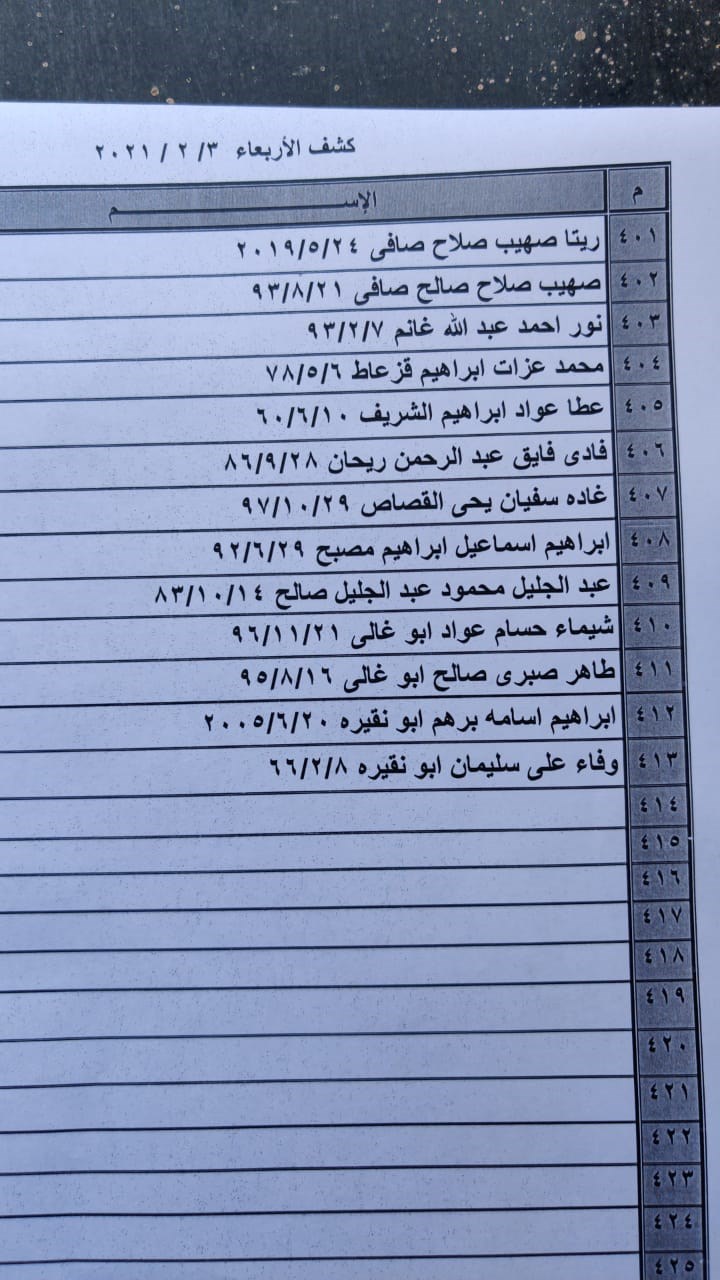 كشف الأربعاء ٢٠٢١ / ٢ /٣
م الإســـــــــــــــــم
٤٠١ ريتا صهيب صلاح صافى ٢٠١٩/٥/٢٤
٤٠٢ صهيب صلاح صالح صافى ٩٣/٨/٢١
٤٠٣ نور احمد عبد الله غانم ٩٣/٢/٧
٤٠٤ محمد عزات ابراهيم قزعاط ٧٨/٥/٦
٤٠٥ عطا عواد ابراهيم الشريف ٦٠/٦/١٠
٤٠٦ فادى فايق عبد الرحمن ريحان ٨٦/٩/٢٨
٤٠٧ غاده سفيان يحى القصاص ٩٧/١٠/٢٩
٤٠٨ ابراهيم اسماعيل ابراهيم مصبح ٩٢/٦/٢٩
٤٠٩ عبد الجليل محمود عبد الجليل صالح ٨٣/١٠/١٤
٤١٠ شيماء حسام عواد ابو غالى ٩٦/١١/٢١
٤١١ طاهر صبرى صالح ابو غالى ٩٥/٨/١٦
٤١٢ ابراهيم اسامه برهم ابو نقيره ٢٠٠٥/٦/٢٠
٤١٣ وفاء على سليمان ابو نقيره ٦٦/٢/٨
٤١٤
٤١٥
٤١٦
٤١٧
٤١٨
٤١٩
٤٢٠
٤٢١
٤٢٢
٤٢٣
٤٢٤
٤٢٥